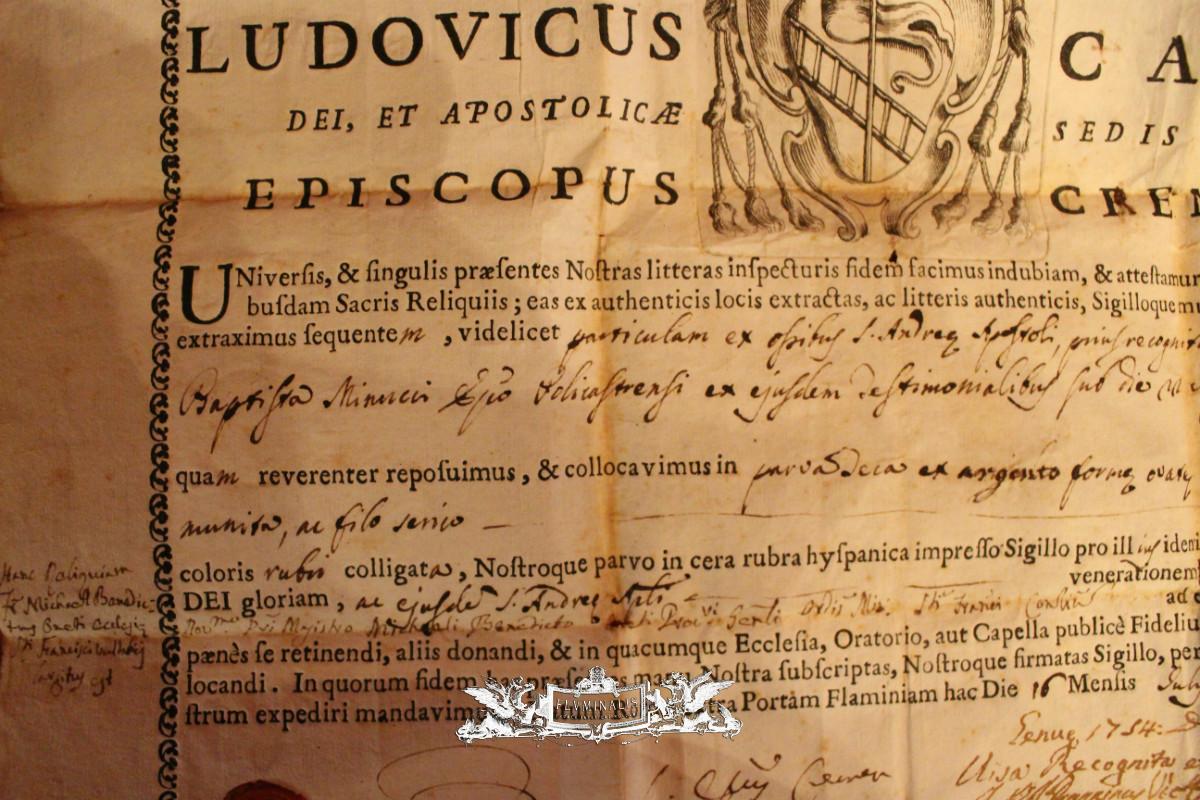 LUDOVICUS CA
DEI, ET APOSTOLICÆ SEDIS
EPISCOPUS CREM
UNiverſis, & ſingulis præſentes Noſtras litteras inſpecturis fidem facimus indubiam, & atteſtamur
buſdam Sacris Reliquiis; eas ex authenticis locis extractas, ac litteris authenticis, Sigilloque m
extraximus ſequentem, videlicet particulam ex oſsibus S. Andreę Apoſtoli, prius recognit
Baptiſta Minucci Epo Policastrensi ex ejusdem Testimonialibus sub die
quam reverenter repoſuimus, & collocavimus in parva Teca ex argento formę ovatę
munita, ac filo serico
coloris rubri colligata, Noſtroque parvo in cera rubra hyſpanica impreſſo Sigillo pro ill idem
venerationem
DEI gloriam, ac ejusdē S. Andreę Apli ad e
Michaeli Benedicto
pænès ſe retinendi, aliis donandi, & in quacumque Eccleſia, Oratorio, aut Capella publicè Fideliu
locandi. In quorum fidem has præſentes manu Noſtra ſubſcriptas, Noſtroque firmatas Sigillo, per
ſtrum expediri mandavimus tra Portam Flaminiam hac Die 16 Menſis
Hanc Reliquiam
Michael Benedic-
tus
Francisci
est
FLUMINALIS
Genuę 1754.
Visa Recognita